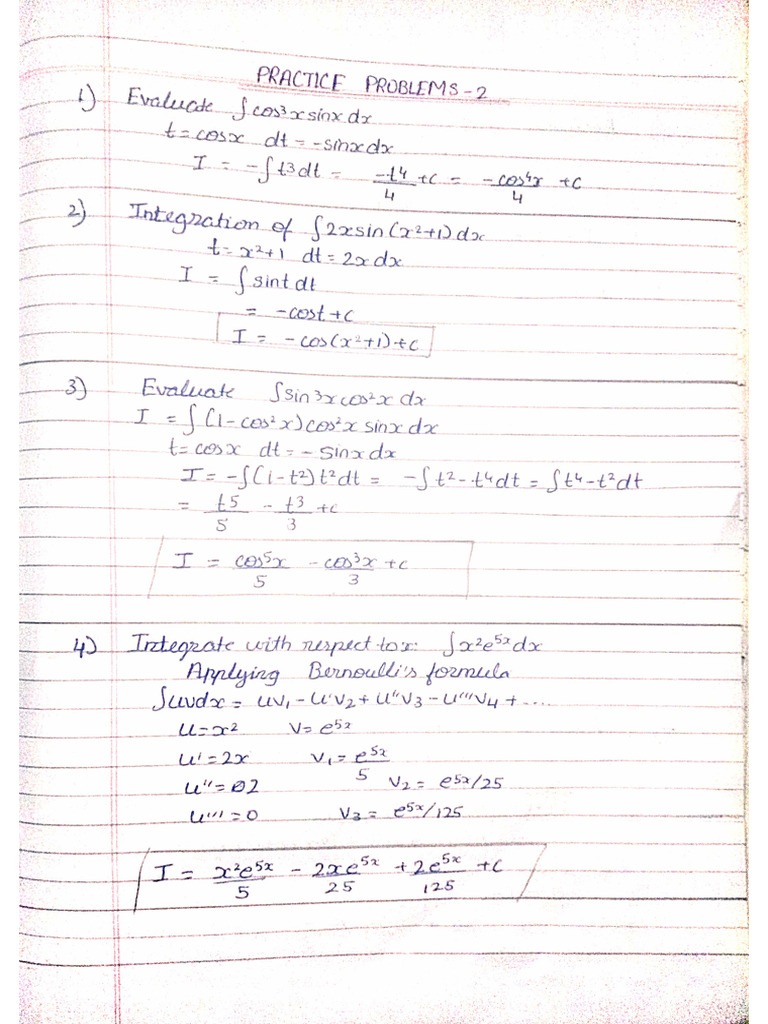 PRACTICE PROBLEMS-2
1) Evaluate ∫cos³x sinx dx
t=cosx dt=-sinxdx
I = -∫t³dt = -t⁴/4 +c = -cos⁴x/4 +c
2) Integration of ∫2xsin(x²+1)dx
t=x²+1 dt=2xdx
I = ∫sintdt
= -cost+c
I = -cos(x²+1)+c
3) Evaluate ∫sin³xcos²x dx
I = ∫(1-cos²x)cos²x sinx dx
t=cosx dt=-sinxdx
I=-∫(1-t²)t²dt = -∫t²-t⁴dt = ∫t⁴-t²dt
= t⁵/5 - t³/3 +c
I = cos⁵x/5 - cos³x/3 +c
4) Integrate with respect to x: ∫x²e⁵ˣdx
Applying Bernoulli's formula
∫uvdx = uv₁-u'v₂+u''v₃-u'''v₄+....
u=x² v=e⁵ˣ
u'=2x v₁=e⁵ˣ/5
u''=2 v₂=e⁵ˣ/25
u'''=0 v₃=e⁵ˣ/125
I = x²e⁵ˣ/5 - 2xe⁵ˣ/25 + 2e⁵ˣ/125 +c